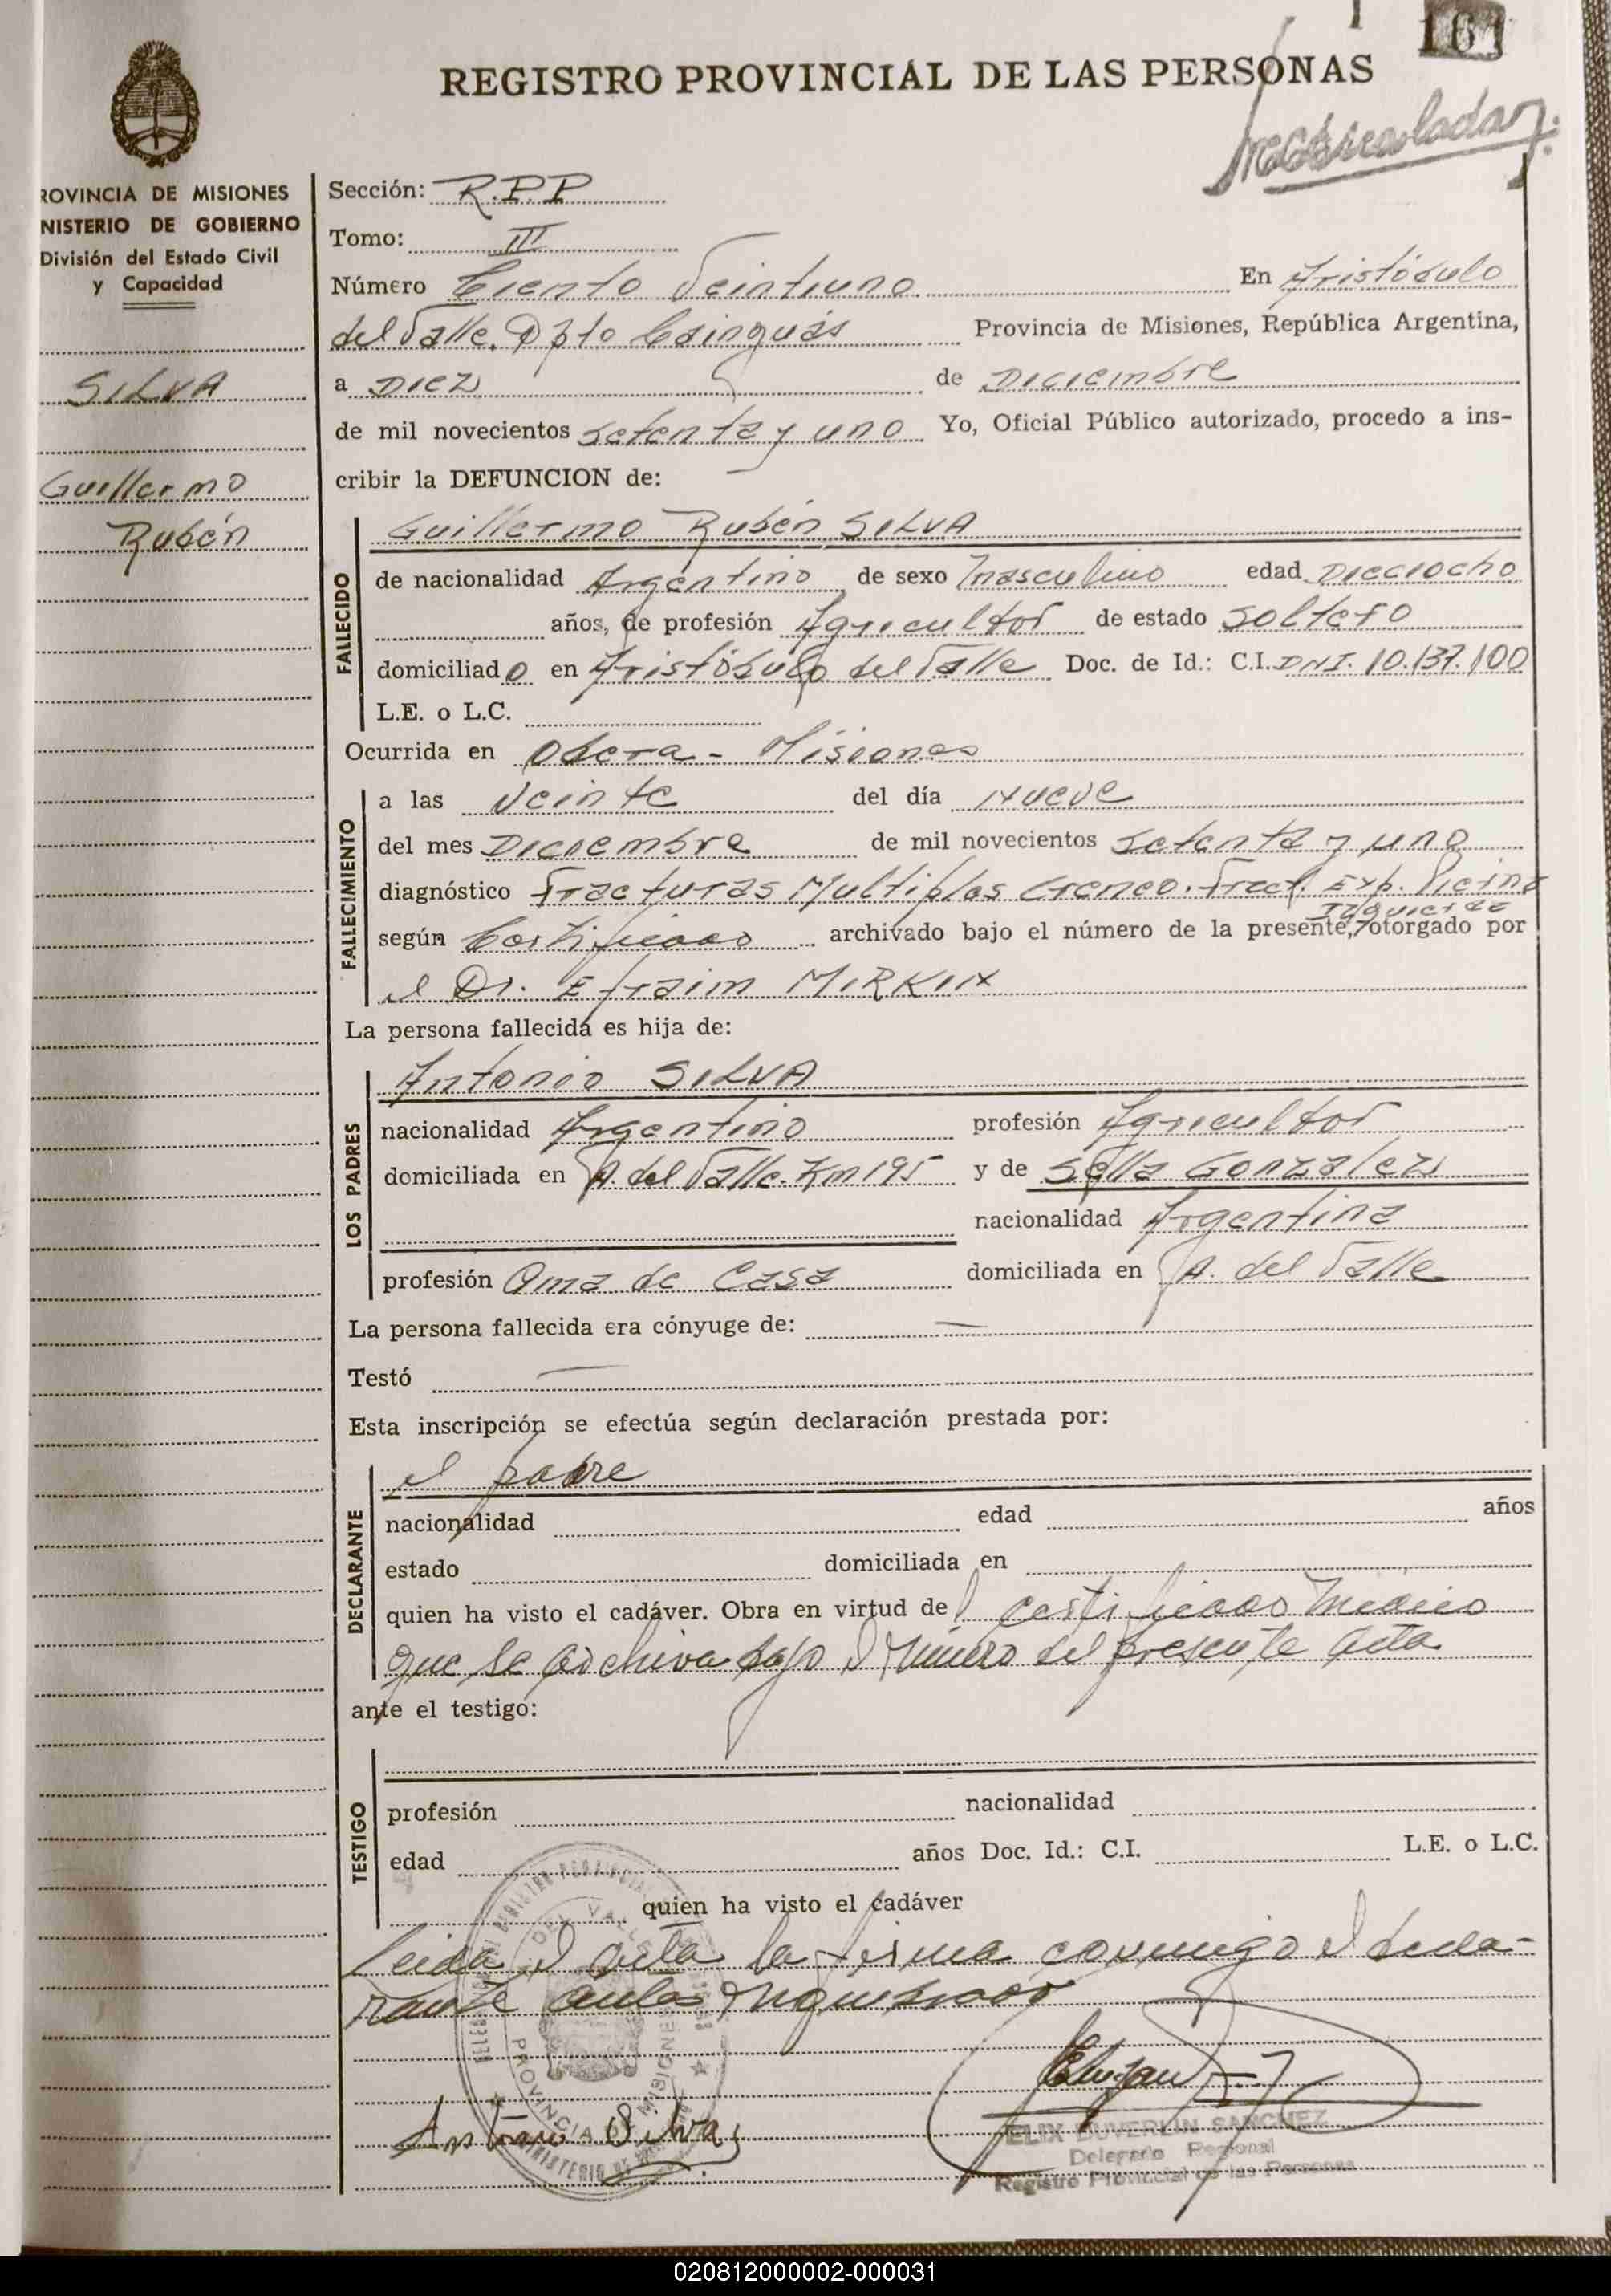 161
REGISTRO PROVINCIAL DE LAS PERSONAS
ROVINCIA DE MISIONES
NISTERIO DE GOBIERNO
División del Estado Civil
y Capacidad
SILVA
Guillermo
Rubén
Sección: R.P.P
Tomo: III
Número Ciento Veintiuno En Aristóbulo
del Valle. Dpto Cainguás Provincia de Misiones, República Argentina,
a DIEZ de Diciembre
de mil novecientos setenta y uno Yo, Oficial Público autorizado, procedo a ins-
cribir la DEFUNCION de:
FALLECIDO
Guillermo Rubén SILVA
de nacionalidad Argentino de sexo masculino edad Dieciocho
años, de profesión Agricultor de estado soltero
domiciliado en Aristóbulo del Valle Doc. de Id.: C.I. DNI. 10.137.100
L.E. o L.C.
Ocurrida en Obera - Misiones
FALLECIMIENTO
a las Veinte del día Nueve
del mes Diciembre de mil novecientos setenta y uno
diagnóstico Fracturas Multiples Craneo. Fract. Exp.
Izquierda
según Certificado archivado bajo el número de la presente, otorgado por
el Dr. Efraim MIRKIN
La persona fallecida es hija de:
LOS PADRES
Antonio SILVA
nacionalidad Argentino profesión Agricultor
domiciliada en A. del Valle. Km 195 y de Sella Gonzalez
nacionalidad Argentina
profesión Ama de Casa domiciliada en A. del Valle
La persona fallecida era cónyuge de: —
Testó —
Esta inscripción se efectúa según declaración prestada por:
DECLARANTE
el padre
nacionalidad edad años
estado domiciliada en
quien ha visto el cadáver. Obra en virtud del certificado médico
que se archiva bajo el número del presente acta
ante el testigo:
TESTIGO
profesión nacionalidad
edad años Doc. Id.: C.I. L.E. o L.C.
quien ha visto el cadáver
Leida el acta la firma conmigo el decla-
rante
Antonio Silva
FELIX DUVERLIN SANCHEZ
Delegado Regional
Registro Provincial de las Personas
DEL VALLE
PROVINCIA MISIONES
020812000002-000031